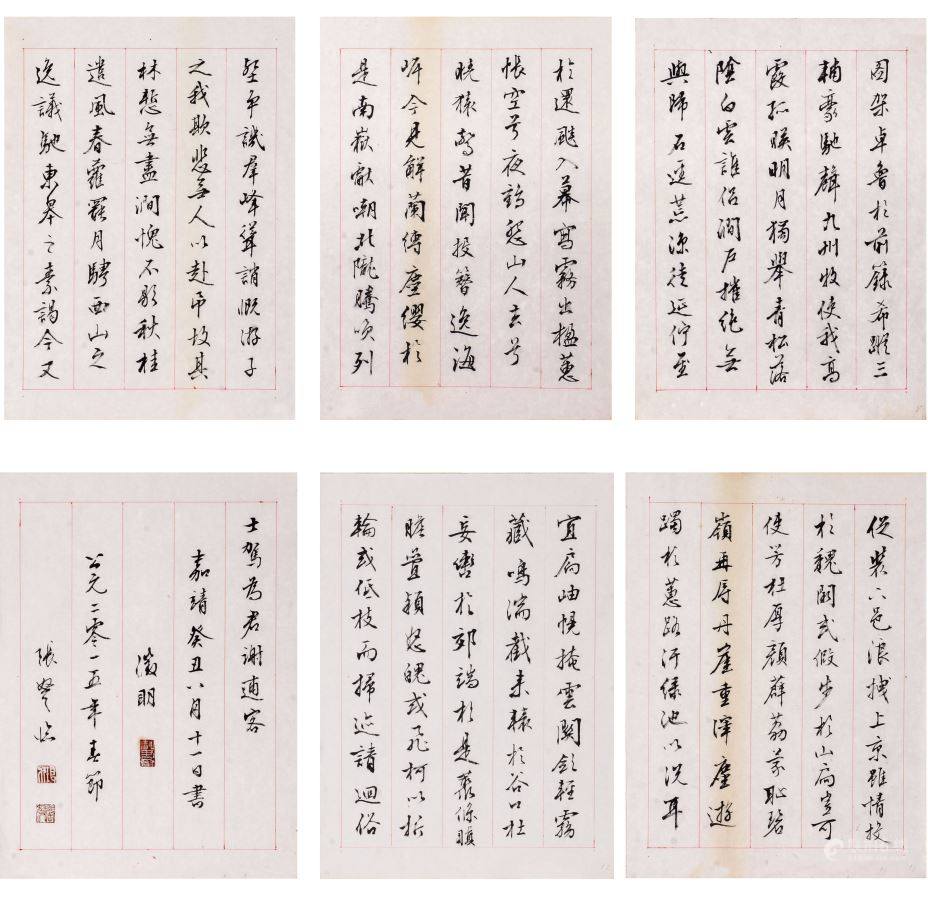 图架卓魯於前籙希蹤三
輔豪馳聲九州收使我高
霞孤映明月獨舉青松落
陰白雲誰侶澗戶摧絶無
與歸石逕荒凉徒延佇至
於還飈入幕寫霧出楹蕙
悵空兮夜鶴怨山人去兮
曉猿驚昔聞投簪逸海
岍今見解蘭縛塵纓於
是南嶽獻嘲北隴騰笑列
壑爭譏羣峰聳誚慨游子
之我欺悲無人以赴弔故其
林慙無盡澗愧不歇秋桂
遣風春蘿罷月騁西山之
逸議馳東皋之素謁今又
促裝下邑浪拽上京雖情投
於魏闕或假步於山扃豈可
使芳杜厚顔薜荔蒙耻碧
嶺再辱丹崖重滓塵遊
躅於蕙路汙淥池以洗耳
宜扃岫幌掩雲關斂輕霧
藏鳴湍截来轅於谷口杜
妄轡於郊端於是叢條瞋
膽疊穎怒魄或飛柯以折
輪或低枝而掃迹請迴俗
士駕為君謝逋客
嘉靖癸丑八月十一日書
徵明
公元二零一五年春節